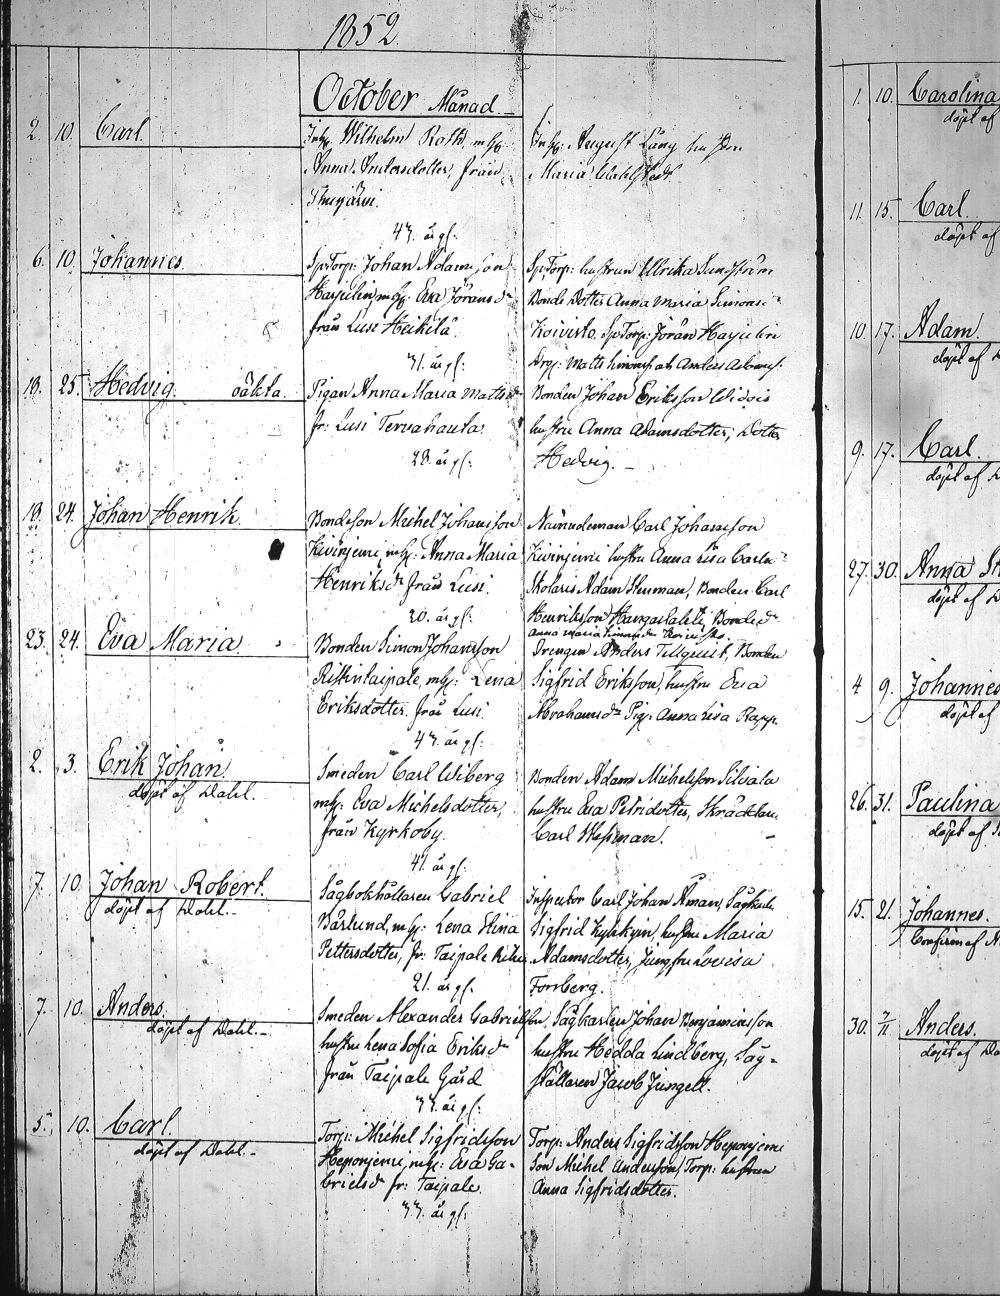 1852.
October Månad.
2. 10. Carl
Inh: Wilhelm Roth, m h:
Anna Andersdotter, från
47. år gl:
Inh: August Lång hustru
Maria Wahlstedt.
6. 10. Johannes.
Sp.Torp: Johan Adamsson
Harjulin, m h: Eva Jöransdr
från Lusi Heikilä
31. år gl:
Sp.Torp: hustrun Ulrika Sundström
Bonde Dotter Anna Maria Simonsdr
Koivisto, Sp.Torp: Jöran Harjulin
Drg: Matts Simonss. ab Anders Adamss.
19. 25. Hedvig. oäkta.
Pigan Anna Maria Mattsdr
fr: Lusi Tervahauta.
28. år gl:
Bonden Johan Eriksson
hustru Anna Adamsdotter, Dotter
Hedvig. –
19. 24. Johan Henrik.
Bondeson Michel Johansson
Kivinjemi, m h: Anna Maria
Henriksdr från Lusi.
20. år gl:
Nämndeman Carl Johansson
Kivinjemi hustru Anna Lisa Carls-
Skolaris Adam Stenman, Bonden Carl
Henriksson Hangastalite, Bondedr
Anna Maria Simonsdr Koivisto
23. 24. Eva Maria
Bonden Simon Johansson
Ristintaipale, m h: Lena
Eriksdotter från Lusi.
47. år gl:
Drengen Anders Tillquist, Bonden
Sigfrid Eriksson, hustru Eva
Abrahamsdr Pig: Anna Lisa Rapp.
2. 3. Erik Johan
döpt af Dahl.
Smeden Carl Wiberg
m h: Eva Michelsdotter,
från Kyrkoby.
41. år gl:
Bonden Adam Michelsson Silvala
hustru Eva Petridotter, Skräddaren
Carl Wessman.
7. 10. Johan Robert.
döpt af Dahl. –
Sågbokhållaren Gabriel
Bårlund, m h: Lena Stina
Pettersdotter, fr: Taipale
21. år gl.
Inspektor Carl Johan Åman, Sågkarlen
Sigfrid Kylkyin, hustru Maria
Adamsdotter, Jungfru Lovisa
Forrberg.
7. 10. Anders.
döpt af Dahl. –
Smeden Alexander Gabrielsson,
hustru Lena Sofia Eriksdr
från Taipale Gård
33. år gl:
Sågkarlen Johan Benjaminsson
hustru Hedda Lindberg, Såg-
ställaren Jacob Jungell.
5. 10. Carl.
döpt af Dahl. –
Torp: Michel Sigfridsson
Heponjemi, m h: Eva Ga-
brielsdr fr: Taipale.
33. år gl:
Torp: Anders Sigfridsson Heponjemi
Son Michel Andersson, Torp: hustrun
Anna Sigfridsdotter.
1. 10. Carolina
döpt af
11. 15. Carl.
döpt af
10. 17. Adam.
döpt af
9. 17. Carl.
döpt af
27. 30. Anna
döpt af
4 9. Johannes
döpt af
26. 31. Paulina
döpt af
15. 21. Johannes.
Confirm af
30. 7/11 Anders.
döpt af Da